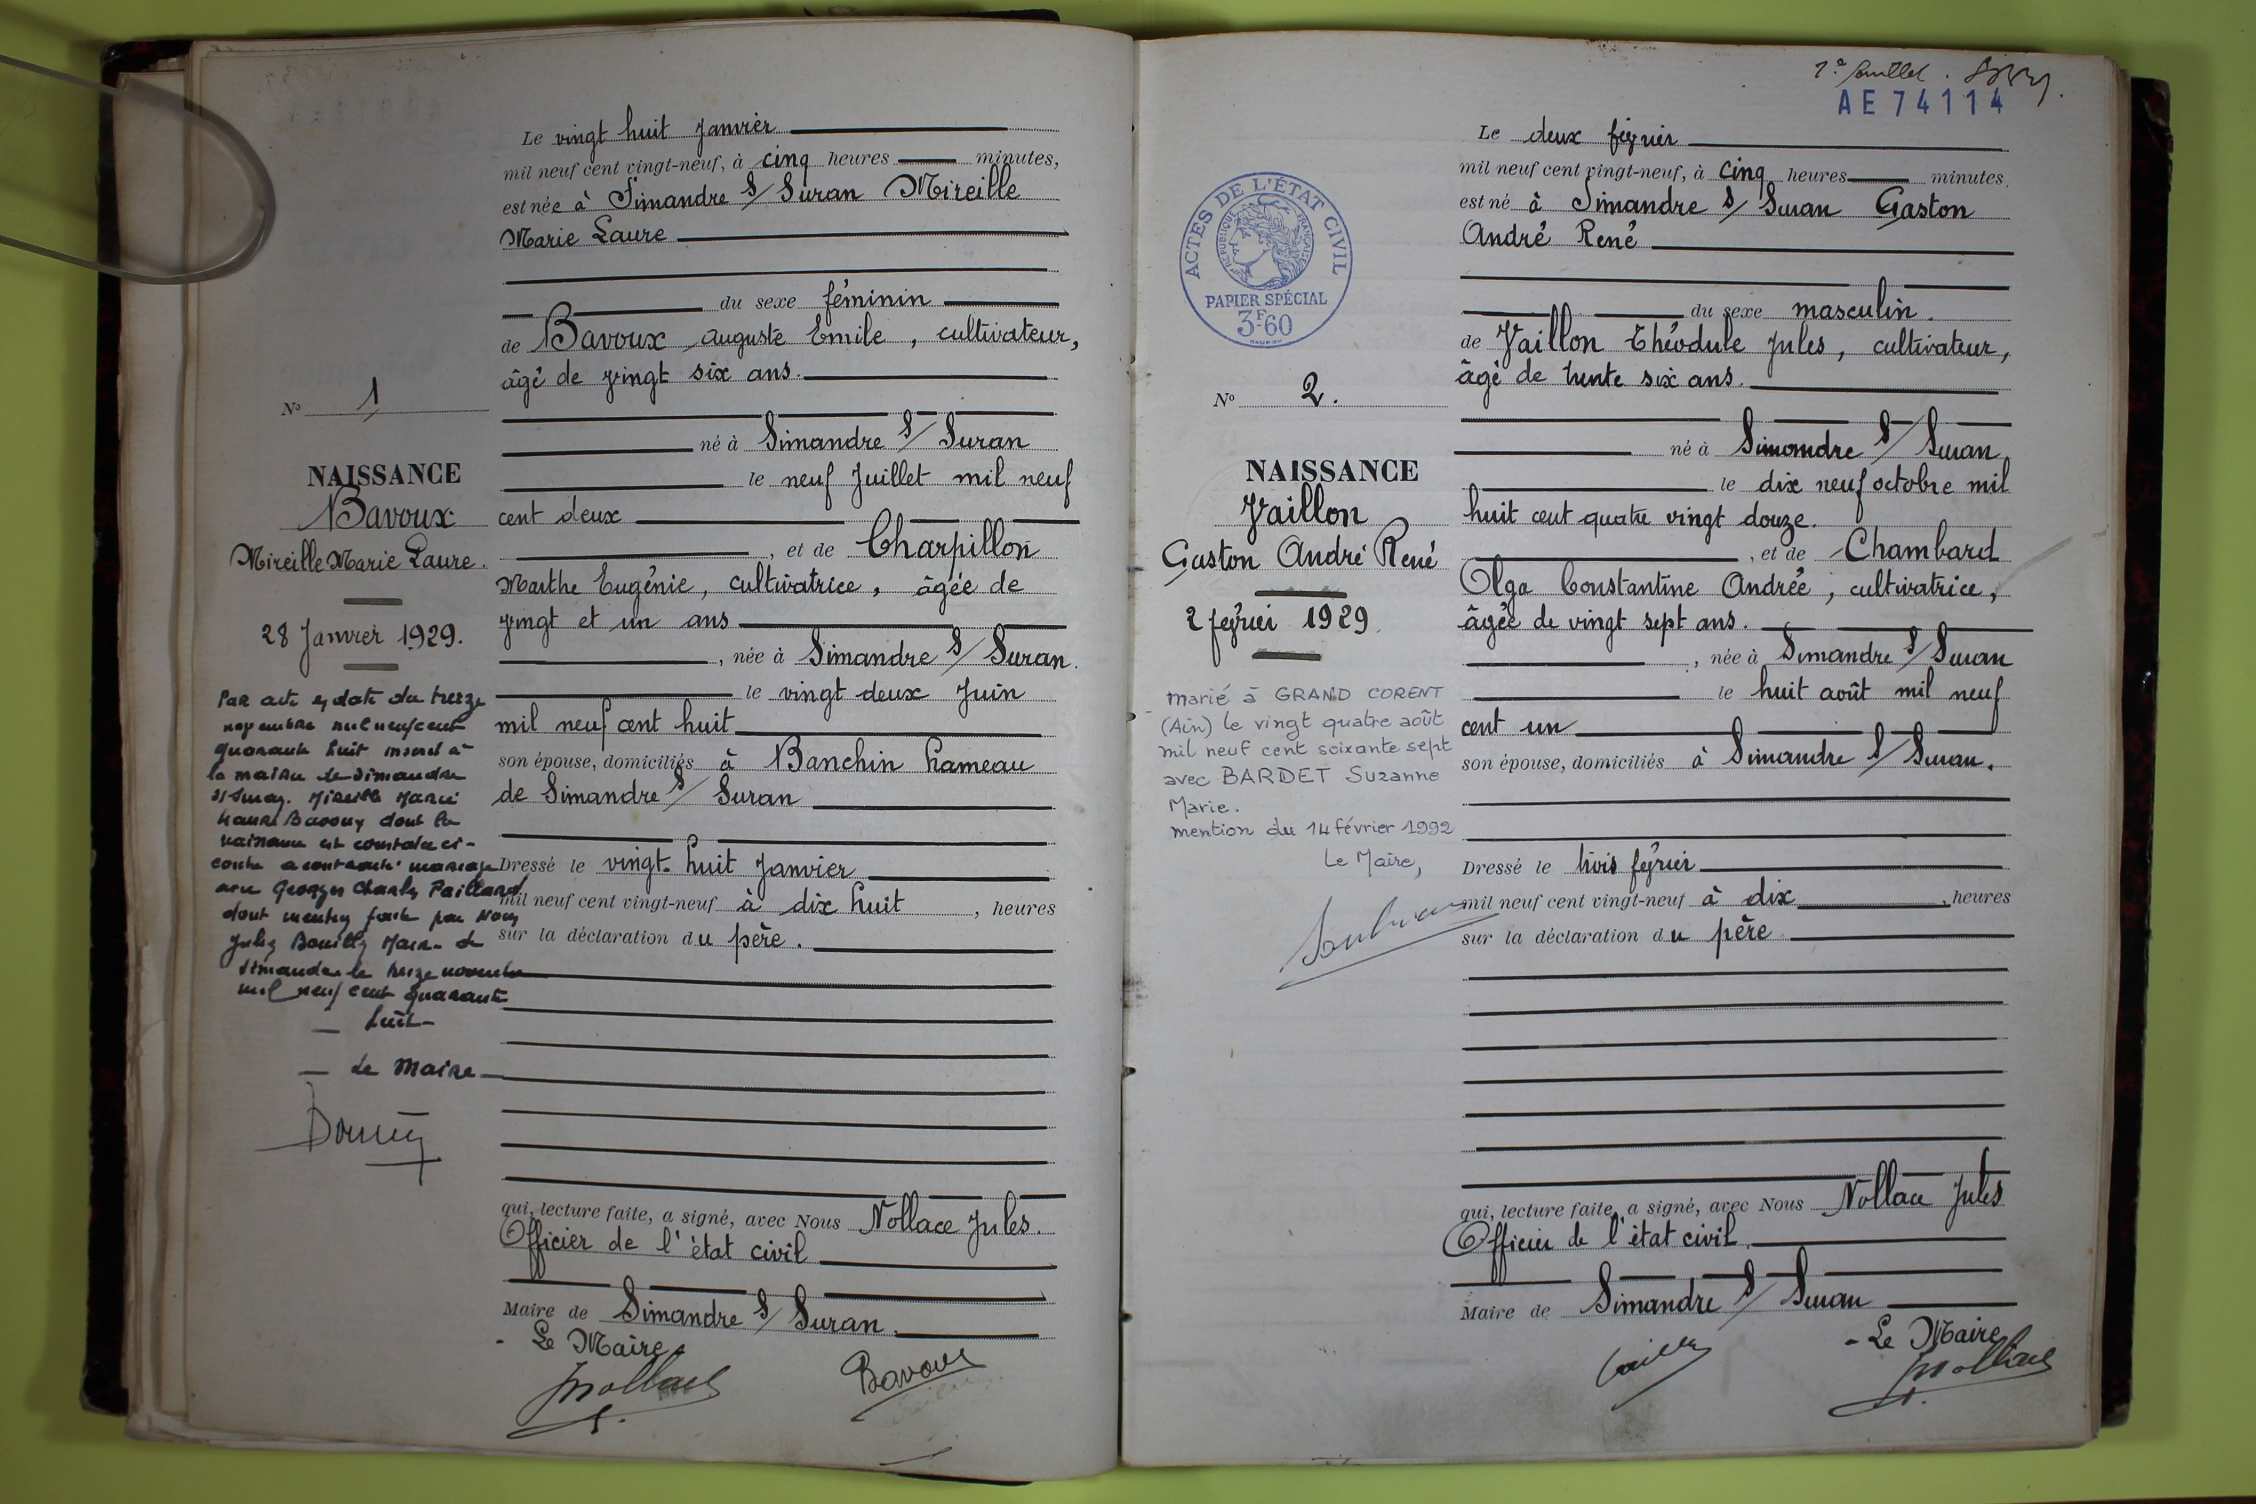 Le vingt huit Janvier
mil neuf cent vingt-neuf, à cinq heures minutes,
est née à Simandre S/ Suran Mireille
Marie Laure
du sexe féminin
de Bavoux Auguste Emile, cultivateur,
âgé de vingt six ans.
né à Simandre S/ Suran
le neuf Juillet mil neuf
cent deux
, et de Charpillon
Marthe Eugénie, cultivatrice, âgée de
vingt et un ans
, née à Simandre S/ Suran.
le vingt deux Juin
mil neuf cent huit
son épouse, domiciliés à Banchin hameau
de Simandre S/ Suran
Dressé le vingt-huit Janvier
mil neuf cent vingt-neuf à dix huit, heures
sur la déclaration du père.
qui, lecture faite, a signé, avec Nous Nollace Jules.
Officier de l'état civil
Maire de Simandre S/ Suran.
- Le Maire,
JNollace
Bavoux
No 1
NAISSANCE
Bavoux
Mireille Marie Laure.
28 Janvier 1929.
Par acte en date du treize
novembre mil neuf cent
quarante huit inscrit à
la mairie de Simandre
s/ Suran. Mireille Marie
Laure Bavoux dont la
naissance est constatée ci-
contre a contracté mariage
avec Georges Charles Paillard
dont mention faite par Nous
Jules Maire de
Simandre le treize novembre
mil neuf cent quarante
huit-
Le Maire
AE 74114
Le deux février
mil neuf cent vingt-neuf, à cinq heures minutes,
est né à Simandre S/ Suran Gaston
André René
du sexe masculin.
de Vaillon Théodule Jules, cultivateur,
âgé de trente six ans.
né à Simandre S/ Suran
le dix neuf octobre mil
huit cent quatre vingt douze.
, et de Chambard
Olga Constantine Andrée, cultivatrice,
âgée de vingt sept ans.
, née à Simandre S/ Suran
le huit août mil neuf
cent un
son épouse, domiciliés à Simandre S/ Suran.
Dressé le trois février
mil neuf cent vingt-neuf à dix, heures
sur la déclaration du père
qui, lecture faite, a signé, avec Nous Nollace Jules
Officier de l'état civil.
Maire de Simandre S/ Suran
- Le Maire
Vaillon
JNollace
ACTES DE L'ÉTAT CIVIL
RÉPUBLIQUE FRANÇAISE
PAPIER SPÉCIAL
3F60
No 2.
NAISSANCE
Vaillon
Gaston André René
2 février 1929.
marié à GRAND CORENT
(Ain) le vingt quatre août
mil neuf cent soixante sept
avec BARDET Suzanne
Marie.
mention du 14 février 1992
Le Maire,